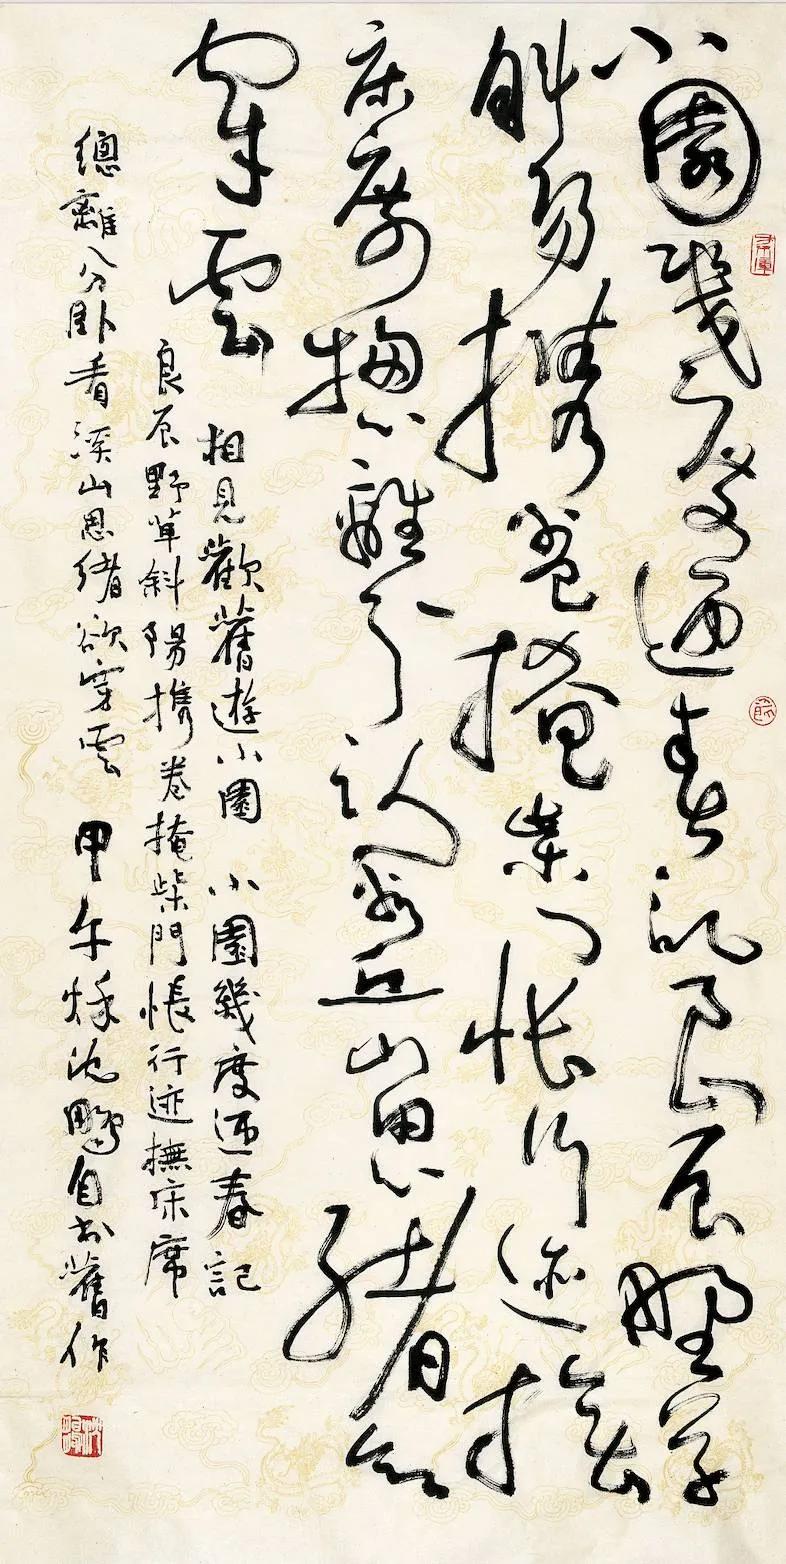 小園幾度迎春記良辰野草
斜陽携卷掩柴門悵行迹撫
床席總離分卧看丘山思緒欲
穿雲
相見歡舊遊小園 小園幾度迎春記
良辰野草斜陽携卷掩柴門悵行迹撫床席
總離分卧看溪山思緒欲穿雲 甲午秋沈鵬自書舊作
沈鵬